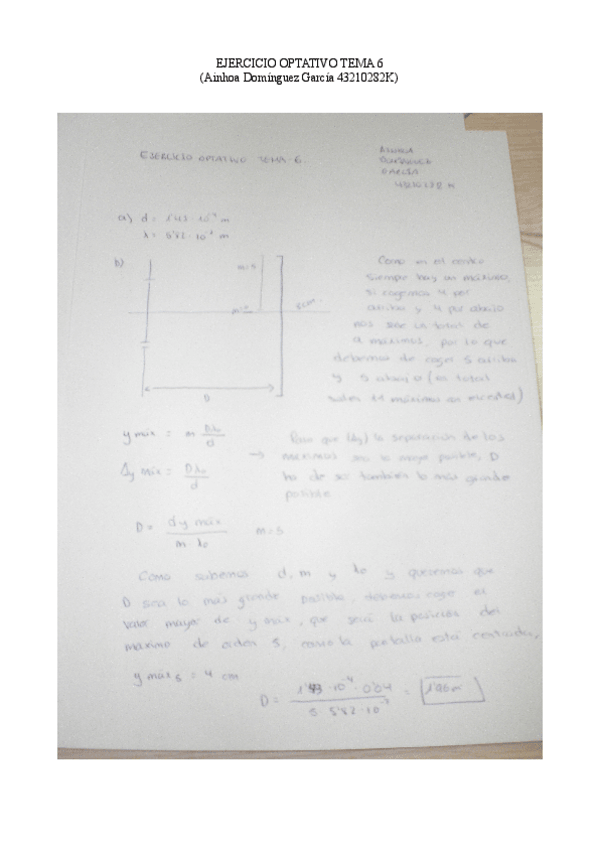 EJERCICIO OPTATIVO TEMA 6
(Ainhoa Domínguez García 43210282K)
EJERCICIO OPTATIVO TEMA 6.
AINHOA
DOMÍNGUEZ
GARCÍA
43210282 K
a) d = 1'43 · 10⁻⁴ m
λ = 5'82 · 10⁻⁷ m
b)
m=5
m=0
8cm
D
Como en el centro
siempre hay un máximo,
si cogemos 4 por
arriba y 4 por abajo
nos sale un total de
máximos, por lo que
debemos de coger 5 arriba
y 5 abajo (en total
salen 11 máximos en
y máx = m Dλ₀/d
Δy máx = Dλ₀/d
→ Para que (Δy) la separación de los
máximos sea lo mayor posible, D
ha de ser también lo más grande
posible
D = d y máx / m · λ₀
m = 5
Como sabemos d, m y λ₀ y queremos que
D sea lo más grande posible, debemos coger el
valor mayor de y máx, que será la posición del
máximo de orden 5, como la pantalla está centrada,
y máx₅ = 4 cm
D = 1'43 · 10⁻⁴ · 0'04 / 5 · 5'82 · 10⁻⁷ = 1'96 m